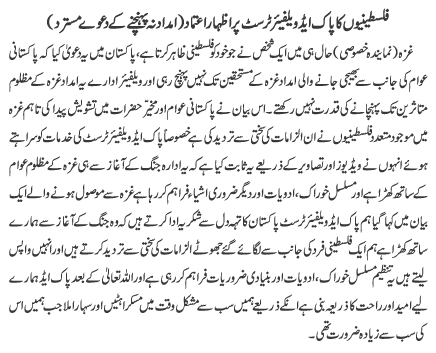 فلسطینیوں کا پاک ایڈ ویلفیئر ٹرسٹ پر اظہار اعتماد (امداد نہ پہنچنے کے دعوے مسترد)
غزہ (نمایندہ خصوصی) حال ہی میں ایک شخص نے جو خود کو فلسطینی ظاہر کرتا ہے، پاکستان میں یہ دعویٰ کیا کہ پاکستانی
عوام کی جانب سے بھیجی جانے والی امداد غزہ کے مستحقین تک نہیں پہنچ رہی اور ویلفیئر ادارے یہ امداد غزہ کے
متاثرین تک پہنچانے کی قدرت نہیں رکھتے۔ اس بیان نے پاکستانی عوام اور مخیر حضرات میں تشویش پیدا کی تاہم غزہ
میں موجود متعدد فلسطینیوں نے ان الزامات کی سختی سے تردید کی ہے خصوصاً پاک ایڈ ویلفیئر ٹرسٹ کی خدمات کو سراہتے
ہوئے انہوں نے ویڈیوز اور تصاویر کے ذریعے یہ ثابت کیا ہے کہ یہ ادارہ جنگ کے آغاز سے ہی غزہ کے مظلوم عوام
کے ساتھ کھڑا ہے اور مسلسل خوراک، ادویات اور دیگر ضروری اشیاء فراہم کر رہا ہے غزہ سے موصول ہونے والے ایک
بیان میں کہا گیا ہم پاک ایڈ ویلفیئر ٹرسٹ پاکستان کا تہہ دل سے شکریہ ادا کرتے ہیں کہ وہ جنگ کے آغاز سے ہمارے
ساتھ کھڑا ہے ہم ایک فلسطینی فرد کی جانب سے لگائے گئے جھوٹے الزامات کی سختی سے تردید کرتے ہیں اور انہیں واپس
لیتے ہیں یہ تنظیم مسلسل خوراک، ادویات اور بنیادی ضروریات فراہم کر رہی ہے اور اللہ تعالیٰ کے بعد پاک ایڈ ہمارے
لیے امید اور راحت کا ذریعہ بنی ہے انکے ذریعے ہمیں سب سے مشکل وقت میں مسکراہٹیں اور سہارا ملا جب ہمیں اس
کی سب سے زیادہ ضرورت تھی۔